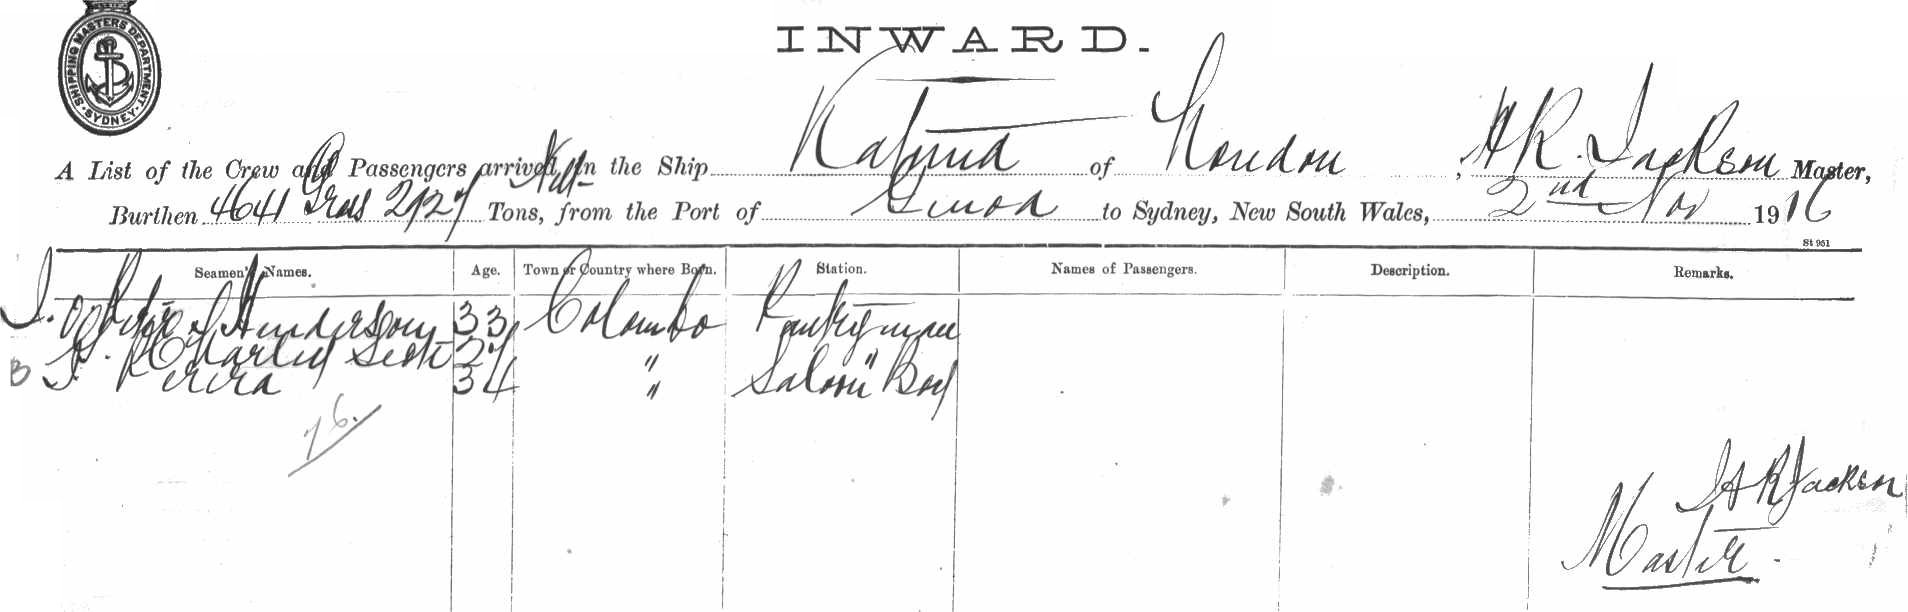 SHIPPING MASTERS DEPARTMENT. SYDNEY.
INWARD.
A List of the Crew and Passengers arrived in the Ship Katuna of London, H R. Jackson Master,
Burthen 4641 Gross Nett Tons, from the Port of Genoa to Sydney, New South Wales, 2nd Nov 1916
St 951
Seamen's Names. Age. Town or Country where Born. Station. Names of Passengers. Description. Remarks.
Henderson 33 Colombo Pantryman
Charles " "
B Perera 34 " Saloon Boy
76.
H R Jackson
Master.